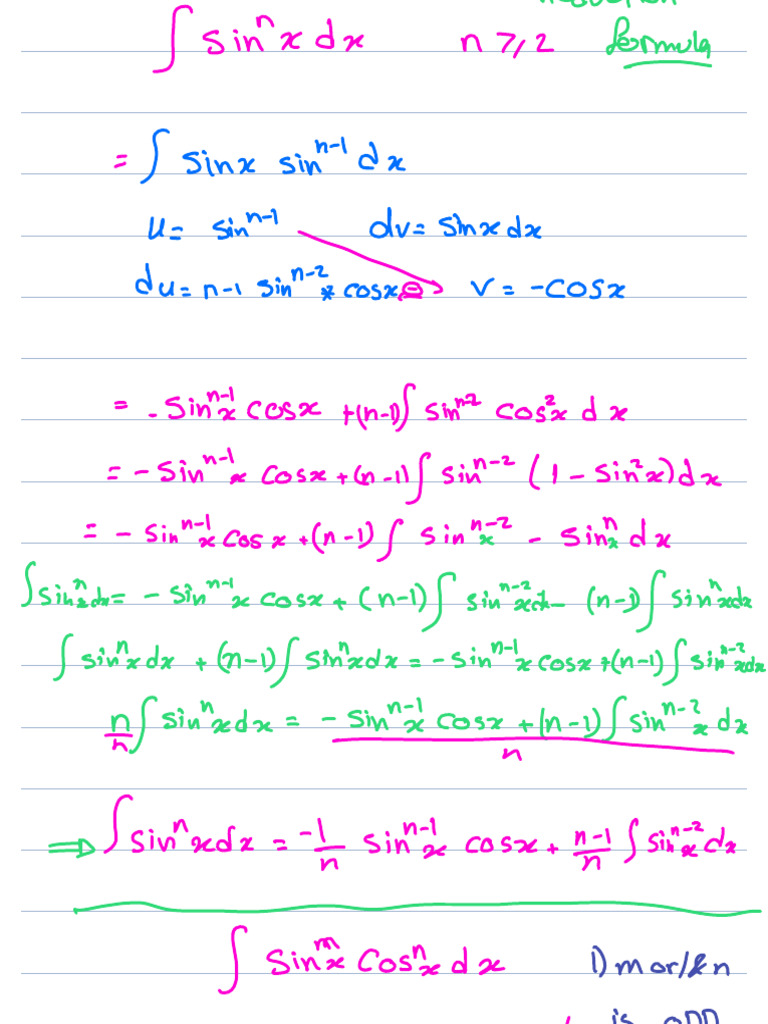 formula
∫ sinⁿx dx n ≥ 2
= ∫ sinx sinⁿ⁻¹ dx
u = sinⁿ⁻¹ dv = sinx dx
du = n-1 sinⁿ⁻² * cosx ⊖ v = -cosx
= - sinⁿ⁻¹x cosx + (n-1) ∫ sinⁿ⁻² cos²x dx
= - sinⁿ⁻¹x cosx + (n-1) ∫ sinⁿ⁻² (1 - sin²x) dx
= - sinⁿ⁻¹x cosx + (n-1) ∫ sinⁿ⁻²x - sinⁿx dx
∫ sinⁿx dx = - sinⁿ⁻¹x cosx + (n-1) ∫ sinⁿ⁻²x dx - (n-1) ∫ sinⁿx dx
∫ sinⁿx dx + (n-1) ∫ sinⁿx dx = - sinⁿ⁻¹x cosx + (n-1) ∫ sinⁿ⁻²x dx
n/n ∫ sinⁿx dx = (- sinⁿ⁻¹x cosx + (n-1) ∫ sinⁿ⁻²x dx)/n
⇒ ∫ sinⁿx dx = -1/n sinⁿ⁻¹x cosx + n-1/n ∫ sinⁿ⁻²x dx
∫ sinᵐx cosⁿx dx 1) m or/& n
is odd